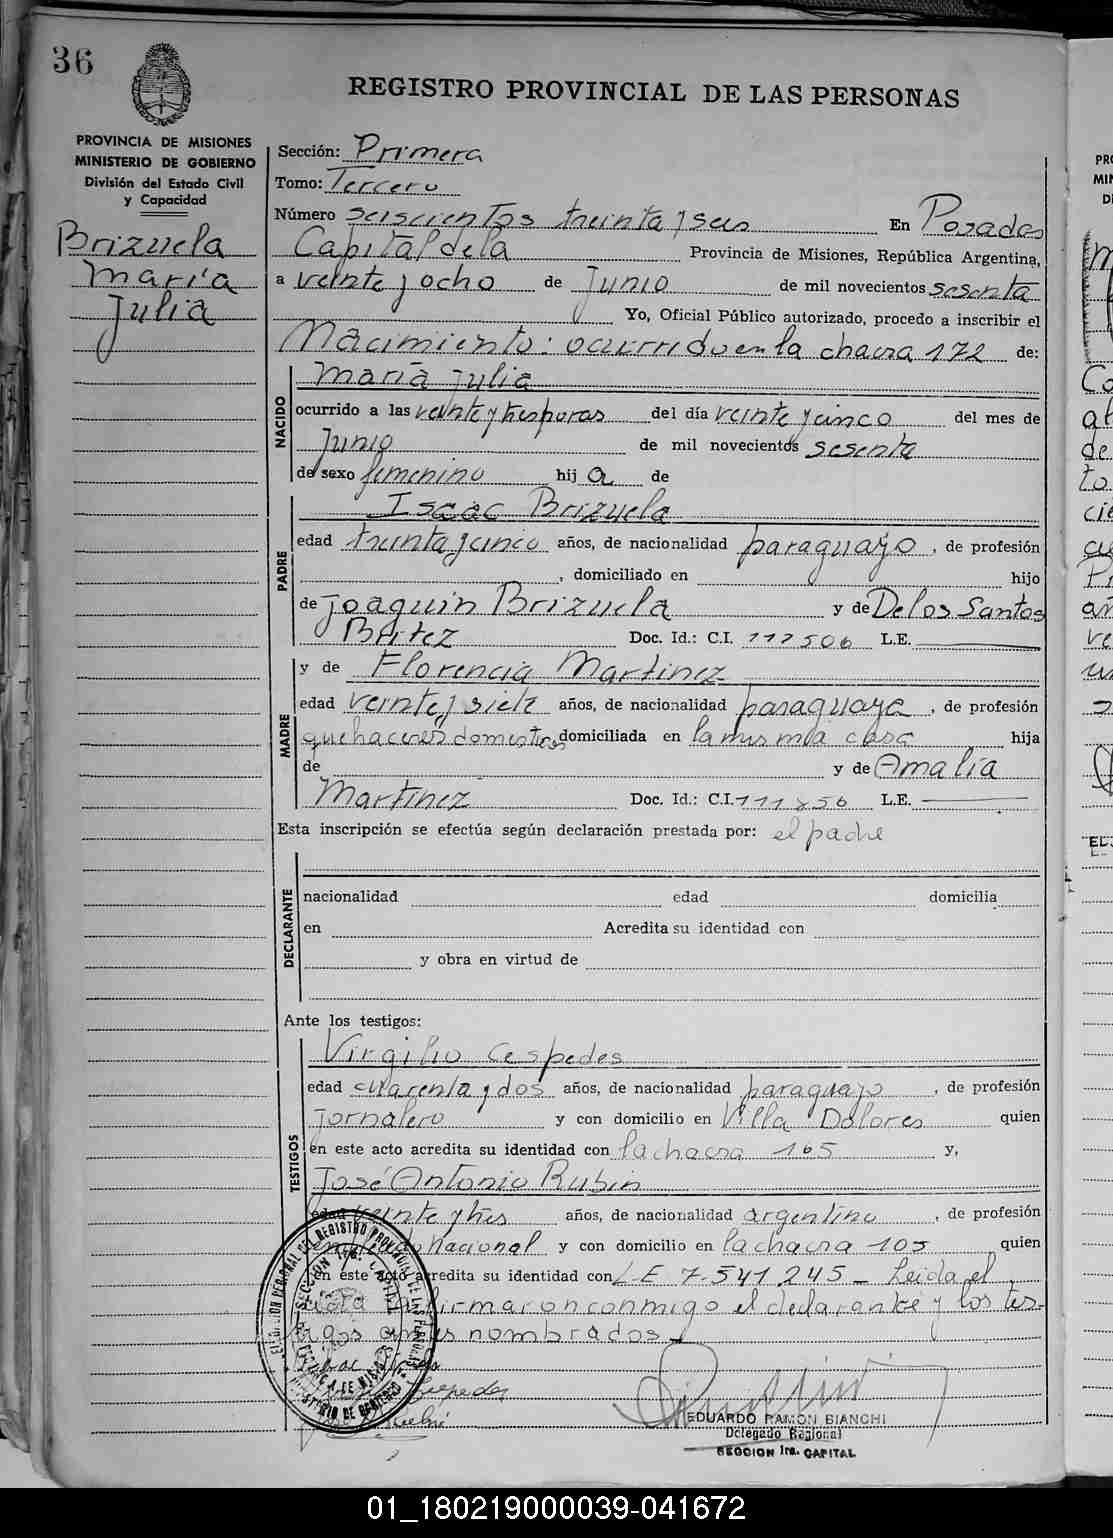 36
REGISTRO PROVINCIAL DE LAS PERSONAS
PROVINCIA DE MISIONES
MINISTERIO DE GOBIERNO
División del Estado Civil
y Capacidad
Brizuela
María
Julia
Sección: Primera
Tomo: Tercero
Número seiscientos treinta y seis En Posadas
Capital de la Provincia de Misiones, República Argentina,
a veinte y ocho de Junio de mil novecientos sesenta
Yo, Oficial Público autorizado, procedo a inscribir el
Nacimiento: ocurrido en la chacra 172 de:
NACIDO
María Julia
ocurrido a las veinte y tres horas del día veinte y cinco del mes de
Junio de mil novecientos sesenta
de sexo femenino hij a de
PADRE
Isaac Brizuela
edad treinta y cinco años, de nacionalidad paraguayo, de profesión
, domiciliado en hijo
de Joaquin Brizuela y de De los Santos
Britez Doc. Id.: C.I. 117506 L.E.
MADRE
y de Florencia Martinez
edad veinte y siete años, de nacionalidad paraguaya, de profesión
quehaceres domesticos domiciliada en la misma casa hija
de y de Amalia
Martinez Doc. Id.: C.I. L.E.
Esta inscripción se efectúa según declaración prestada por: el padre
DECLARANTE
nacionalidad edad domicilia
en Acredita su identidad con
y obra en virtud de
Ante los testigos:
TESTIGOS
Virgilio Cespedes
edad cuarenta y dos años, de nacionalidad paraguayo, de profesión
jornalero y con domicilio en Villa Dolores quien
en este acto acredita su identidad con la chacra 165 y,
José Antonio Rubin
edad veinte y tres años, de nacionalidad argentino, de profesión
nacional y con domicilio en la chacra 105 quien
en este acto acredita su identidad con L E 7.541.245 - Leida el
acta firmaron conmigo el declarante y los tes-
tigos antes nombrados.-
EDUARDO RAMON BIANCHI
Delegado Regional
SECCION 1ra. CAPITAL
01_180219000039-041672